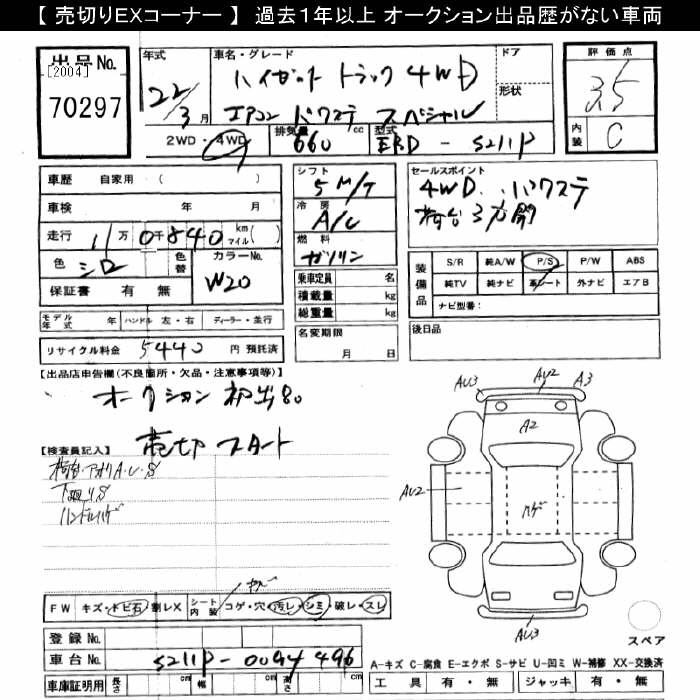 【 売切りEXコーナー 】 過去１年以上 オークション出品歴がない車両
出品No.
[2004]
70297
年式 22/3月
2WD・4WD
車名・グレード ハイゼット トラック 4WD
エアコン パワステ スペシャル
ドア
形状
排気量 660 cc 型式 EBD - S211P
評価点
3.5
内装 C
車歴 自家用 ( )
車検 年 月
走行 11万0千840 km マイル ( )
色 シロ 色替 カラーNo. W20
保証書 有 無
シフト 5M/T
冷房 A/C
燃料 ガソリン
乗車定員 名
積載量 kg
総重量 kg
セールスポイント
4WD. パワステ
荷台3方開
装備品 S/R 純A/W P/S P/W ABS
純TV 純ナビ 革シート 外ナビ エアB
ナビ型番:
モデル年式 年 ハンドル 左・右 ディーラー・並行
リサイクル料金 5440 円 預託済
名変期限 月 日
後日品
【出品店申告欄(不良箇所・欠品・注意事項等)】
オークション初出品
売切スタート
【検査員記入】
荷台・アオリA・U・S
下廻りS
ハンドルハゲ
AU3 AU2 A3
A2
AU2
ハゲ
AU3
スペア
FW キズ・トビ石・割レX シート内装 コゲ・穴・汚レ・シミ・破レ・スレ
登録No.
車台No. S211P-0094496
車庫証明用 長さ cm 幅 cm 高さ cm
A-キズ C-腐食 E-エクボ S-サビ U-凹ミ W-補修 XX-交換済
工具 有・無 ジャッキ 有・無